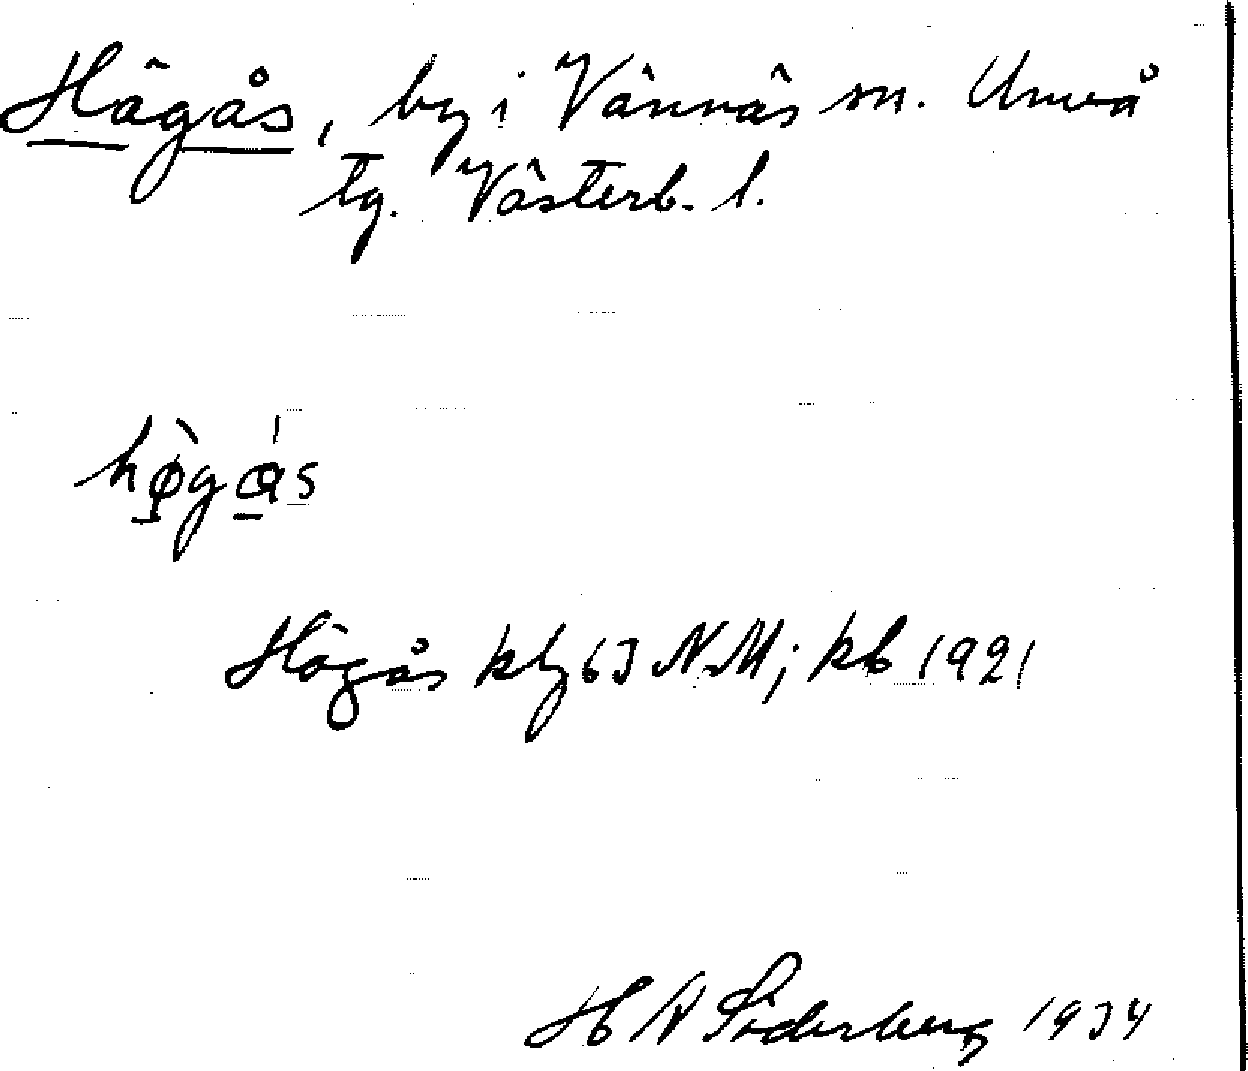 Högås, by i Vännäs sn. Umeå
tg. Västerb. l.
hø̀gɑ́s
Högås kbl 63 NM; kb 1921
H A Söderberg 1934